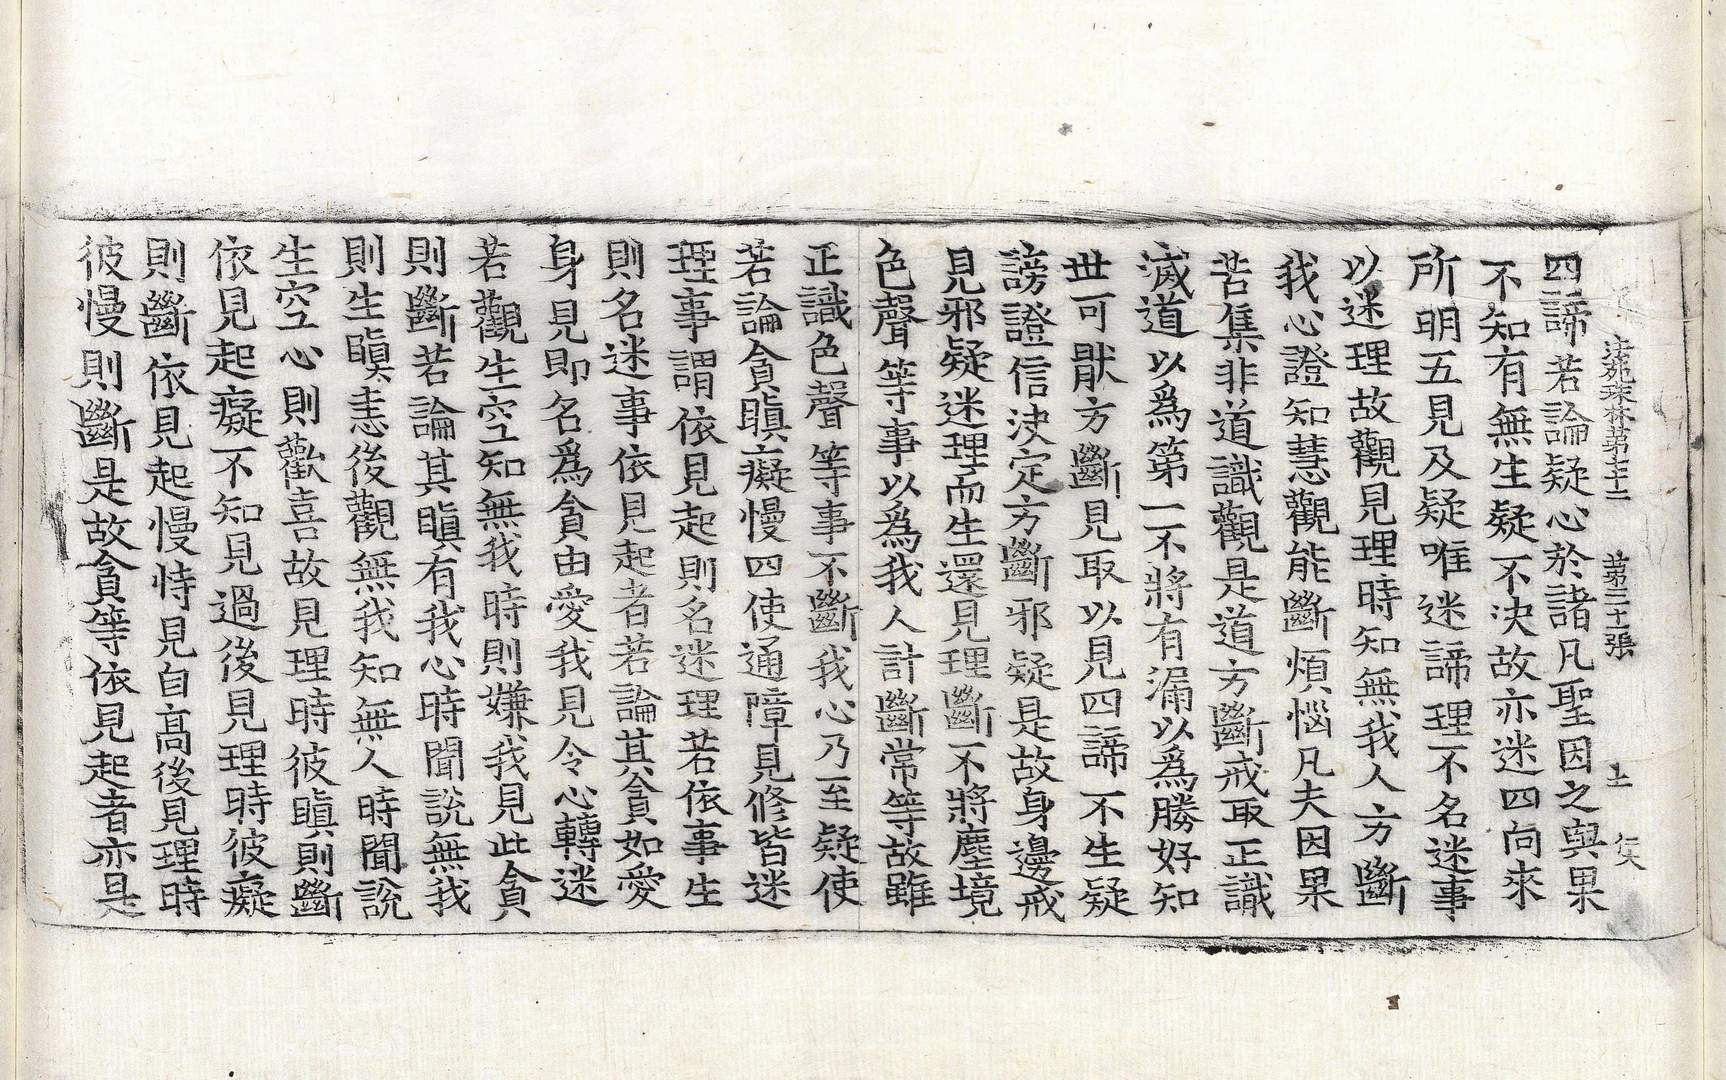 法苑珠林第七十二 第二十張 土 伏
四諦若論疑心於諸凡聖因之與果
不知有無生疑不決故亦迷四向來
所明五見及疑唯迷諦理不名迷事
以迷理故觀見理時知無我人方斷
我心證知慧觀能斷煩惱凡夫因果
苦集非道識觀是道方斷戒取正識
滅道以為第一不將有漏以為勝好知
世可猒方斷見取以見四諦不生疑
謗證信決定方斷邪疑是故身邊戒
見邪疑迷理而生還見理斷不將塵境
色聲等事以為我人計斷常等故雖
正識色聲等事不斷我心乃至疑使
若論貪瞋癡慢四使通障見修皆迷
理事謂依見起則名迷理若依事生
則名迷事依見起者若論其貪如愛
身見即名為貪由愛我見令心轉迷
若觀生空知無我時則嫌我見此貪
則斷若論其瞋有我心時聞說無我
則生瞋恚後觀無我知無人時聞說
生空心則歡喜故見理時彼瞋則斷
依見起癡不知見過後見理時彼癡
則斷依見起慢恃見自高後見理時
彼慢則斷是故貪等依見起者亦是